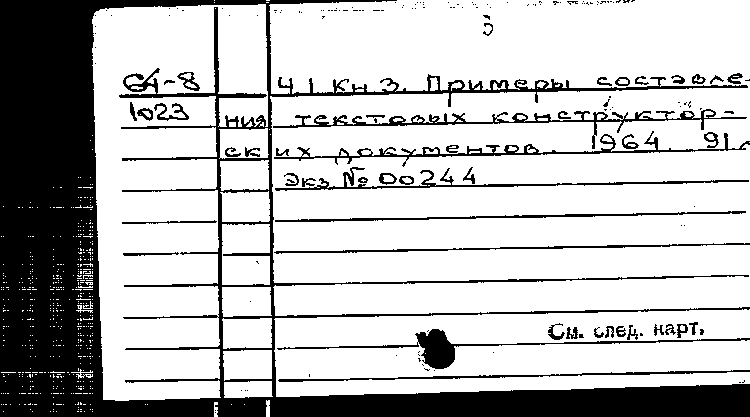 5
64-8 Ч I Кн 3. Примеры составле-
1023 ния текстовых конструктор-
ских документов. 1964 91с
Экз № 00244
См. след. карт.